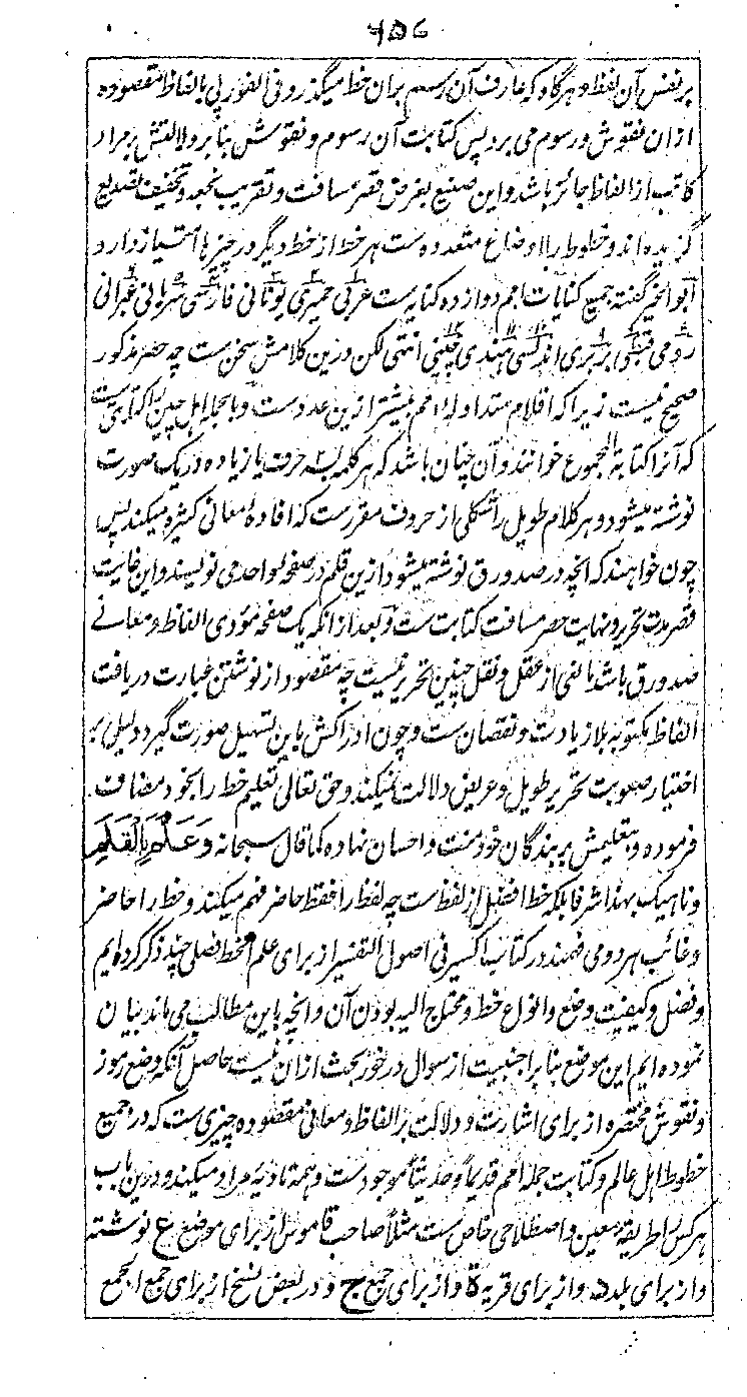 ۷۵۶
بر نفس آن لفظ و هرگاه که عارف آن رسم بران خط میگذرد فی الفور پی بالفاظ مقصوده
ازان نقوش و رسوم می برد پس کتابت آن رسوم و نقوش بنا بر دلالتش بر مراد
کاتب از الفاظ جائز باشد و این صنیع بغرض قصر مسافت و تقریب بُعد و تخفیف تصدیع
گزیده اند و خطوط را اوضاع متعدده ست هر خط از خط دیگر در چیزها امتیاز دارد
ابو الخیر گفته جمیع کتابات امم دوازده کتابه ست عربی حمیری یونانی فارسی سریانی عبرانی
رومی قبطی بربری اندلسی هندی چینی انتهی لکن درین کلامش سخن ست چه حصر مذکور
صحیح نیست زیرا که اقلام متداوله امم بیشتر ازین عدد ست و بالجمله اهل چین را کتابتی ست
که آنرا کتابة المجموع خوانند و آن چنان باشد که هر کلمه بسه حرف یا زیاده در یک صورت
نوشته میشود و هر کلام طویل را شکلی از حروف مقرر ست که افادهٔ معانی کثیره میکند پس
چون خواهند که انچه در صد ورق نوشته میشود ازین قلم در صفحهٔ واحد می نویسند و این غایت
قصر مدت تحریر و نهایت حصر مسافت کتابت ست و بعد ازانکه یک صفحه مؤدی الفاظ و معانے
صد ورق باشد مانعی از عقل و نقل چنین تحریر نیست چه مقصود از نوشتن عبارت دریافت
الفاظ مکتوبه بلا زیادت و نقصان ست و چون ادراکش باین تسهیل صورت گیرد دلیلی بر
اختیار صعوبت تحریر طویل و عریض دلالت نمیکند و حق تعالی تعلیم خط را بخود مضاف
فرموده و بتعلیمش بر بندگان خود منت و احسان نهاده کما قال سبحانه وَعَلَّمَ بِالْقَلَمِ
و ناهیک بهذا شرفا بلکه خط افضل از لفظ ست چه لفظ را فقط حاضر فهم میکند و خط را حاضر
و غائب هر دو می فهمند در کتاب اکسیر فی اصول التفسیر از برای علم خط فضلی چند ذکر کرده ایم
و فضل و کیفیت وضع و انواع خط و محتاج الیه بودن آن و انچه باین مطالب می ماند بیان
نموده ایم این موضع بنا بر اجنبیت از سوال در خور بحث ازان نیست حاصل آنکه وضع رموز
و نقوش مختصره از برای اشارت و دلالت بر الفاظ و معانی مقصوده چیزی ست که در جمیع
خطوط اهل عالم و کتابت جمله امم قدیماً و حدیثاً موجود ست و همه تادیهٔ مراد میکند و درین باب
هر کس را طریقه معین و اصطلاحی خاص ست مثلاً صاحب قاموس از برای موضع ع نوشته
و از برای بلد د و از برای قریه ة و از برای جمع ج و در بعض نسخ از برای جمع الجمع